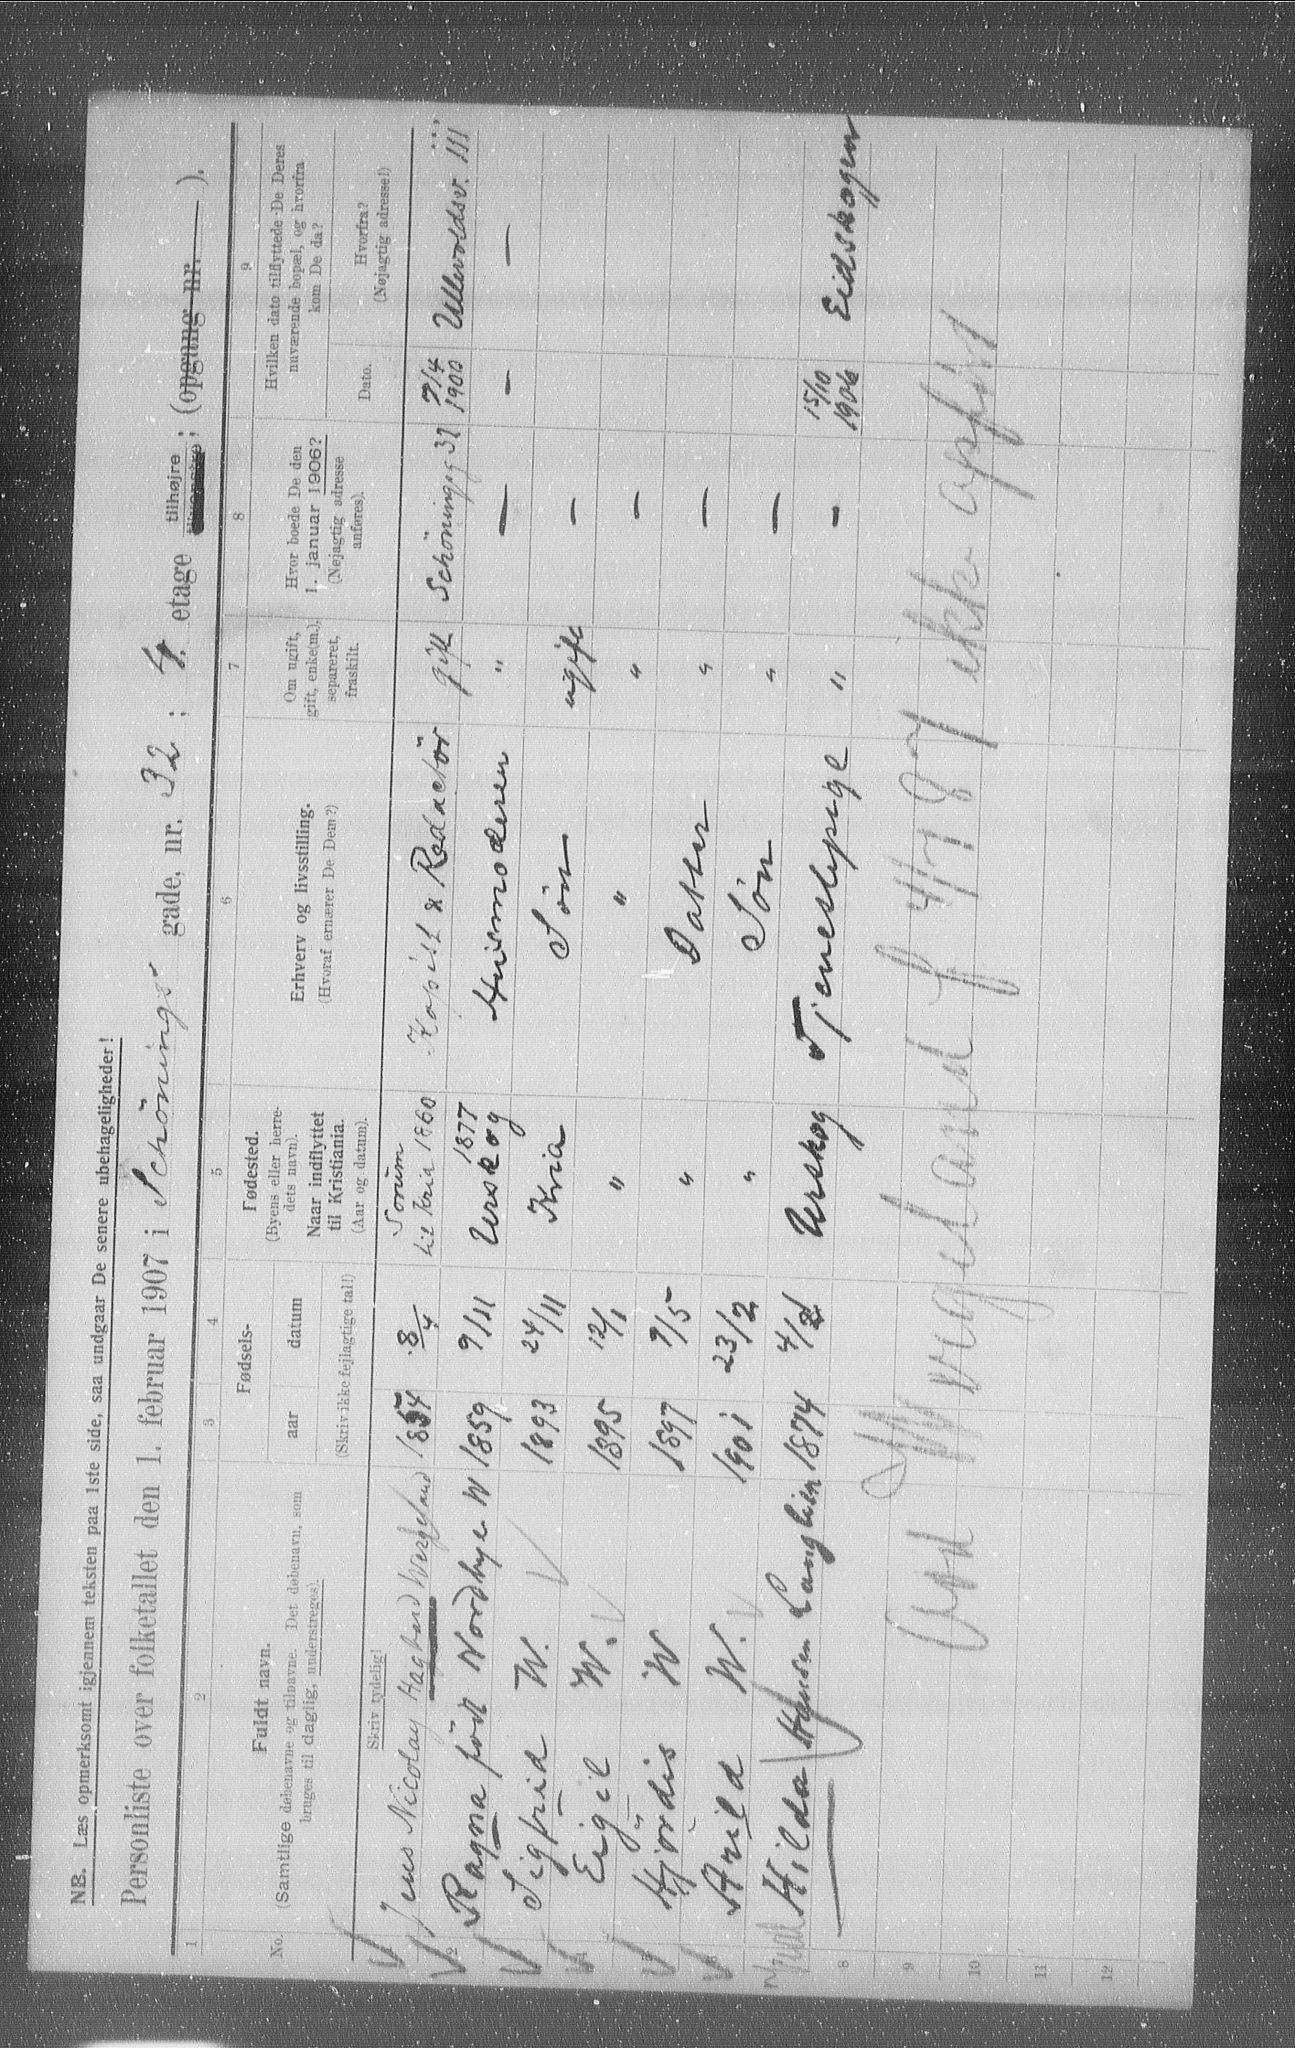 NB. Læs opmerksomt igjennem teksten paa 1ste side, saa undgaar De senere ubehageligheder!
Personliste over folketallet den 1. februar 1907 i Schönings gade, nr. 32 ; 4. etage tilhøjre ; (opgang nr. ).
1 2 3 4 5 6 7 8 9
No.
Fuldt navn.
(Samtlige døbenavne og tilnavne. Det døbenavn, som
bruges til daglig, understreges).
Skriv tydelig!
Fødsels-
aar datum
(Skriv ikke fejlagtige tal!)
Fødested.
(Byens eller herre-
dets navn).
Naar indflyttet
til Kristiania.
(Aar og datum).
Erhverv og livsstilling.
(Hvoraf ernærer De Dem?)
Om ugift,
gift, enke(m.),
separeret,
fraskilt.
Hvor boede De den
1. januar 1906?
(Nøjagtig adresse
anføres).
Hvilken dato tilflyttede De Deres
nuværende bopæl, og hvorfra
kom De da?
Dato.
Hvorfra?
(Nøjagtig adresse!)
Jens Nicolay Hagbard Wergeland 1854 8/4 Sorum til Kria 1860 Kopist & Redactör gift Schöningsg 32 7/4 1900 Ullevoldsv. 111
2 Ragna født Nordbye W 1859 9/11 1877 Urskog Husmoderen " — — —
Sigfrid W. 1893 24/11 Kria Søn ugift —
4 Eigil W. 1895 12/1 " " " —
Hjördis W 1897 7/5 " Datter " —
Arild W. 1901 23/2 " Søn " —
Hilda Hansen Langlien 1874 4/2 Urskog Tjenestepige " — 15/10 1906 Eidskogen
8
9
10
11
12
Wergeland f 4/7 87 ikke opført